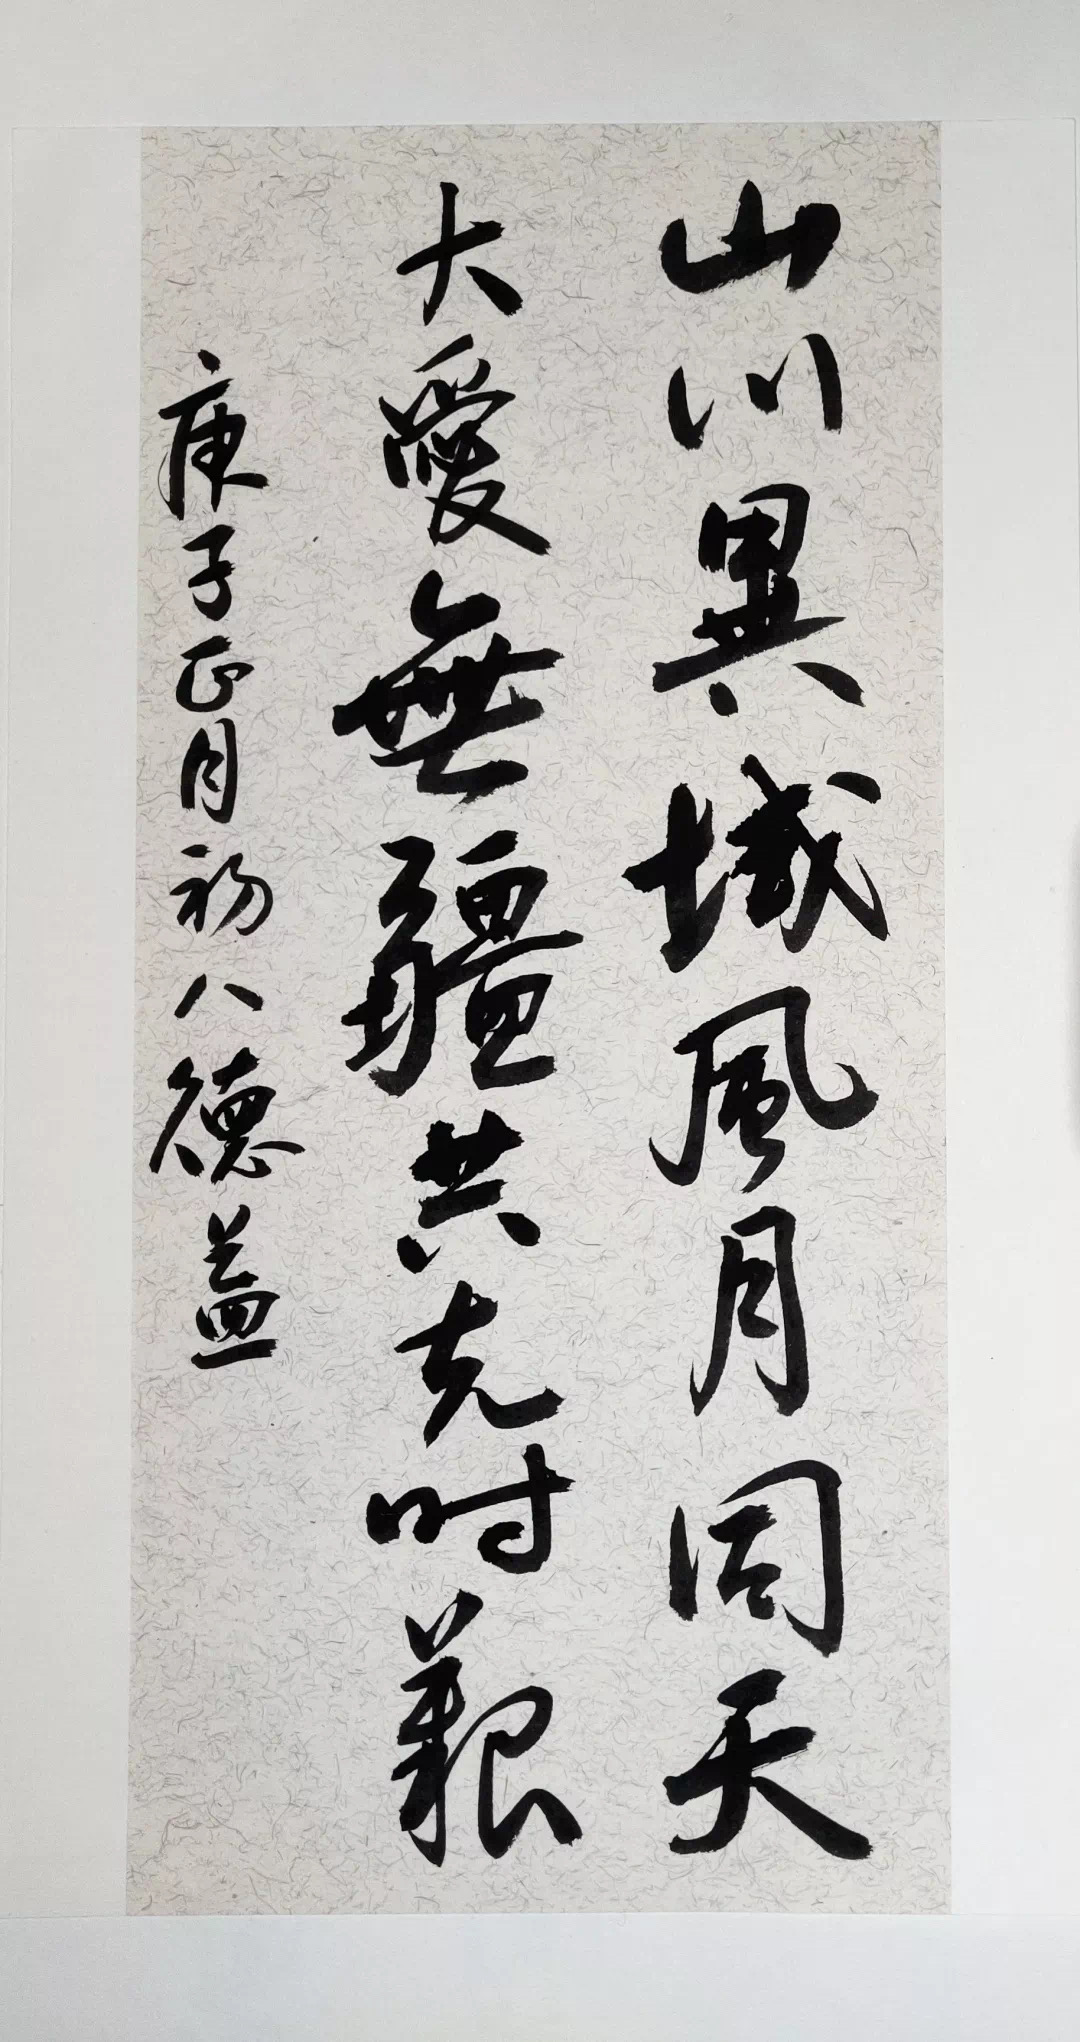 山川異域風月同天
大愛無疆共克時艱
庚子正月初八德益